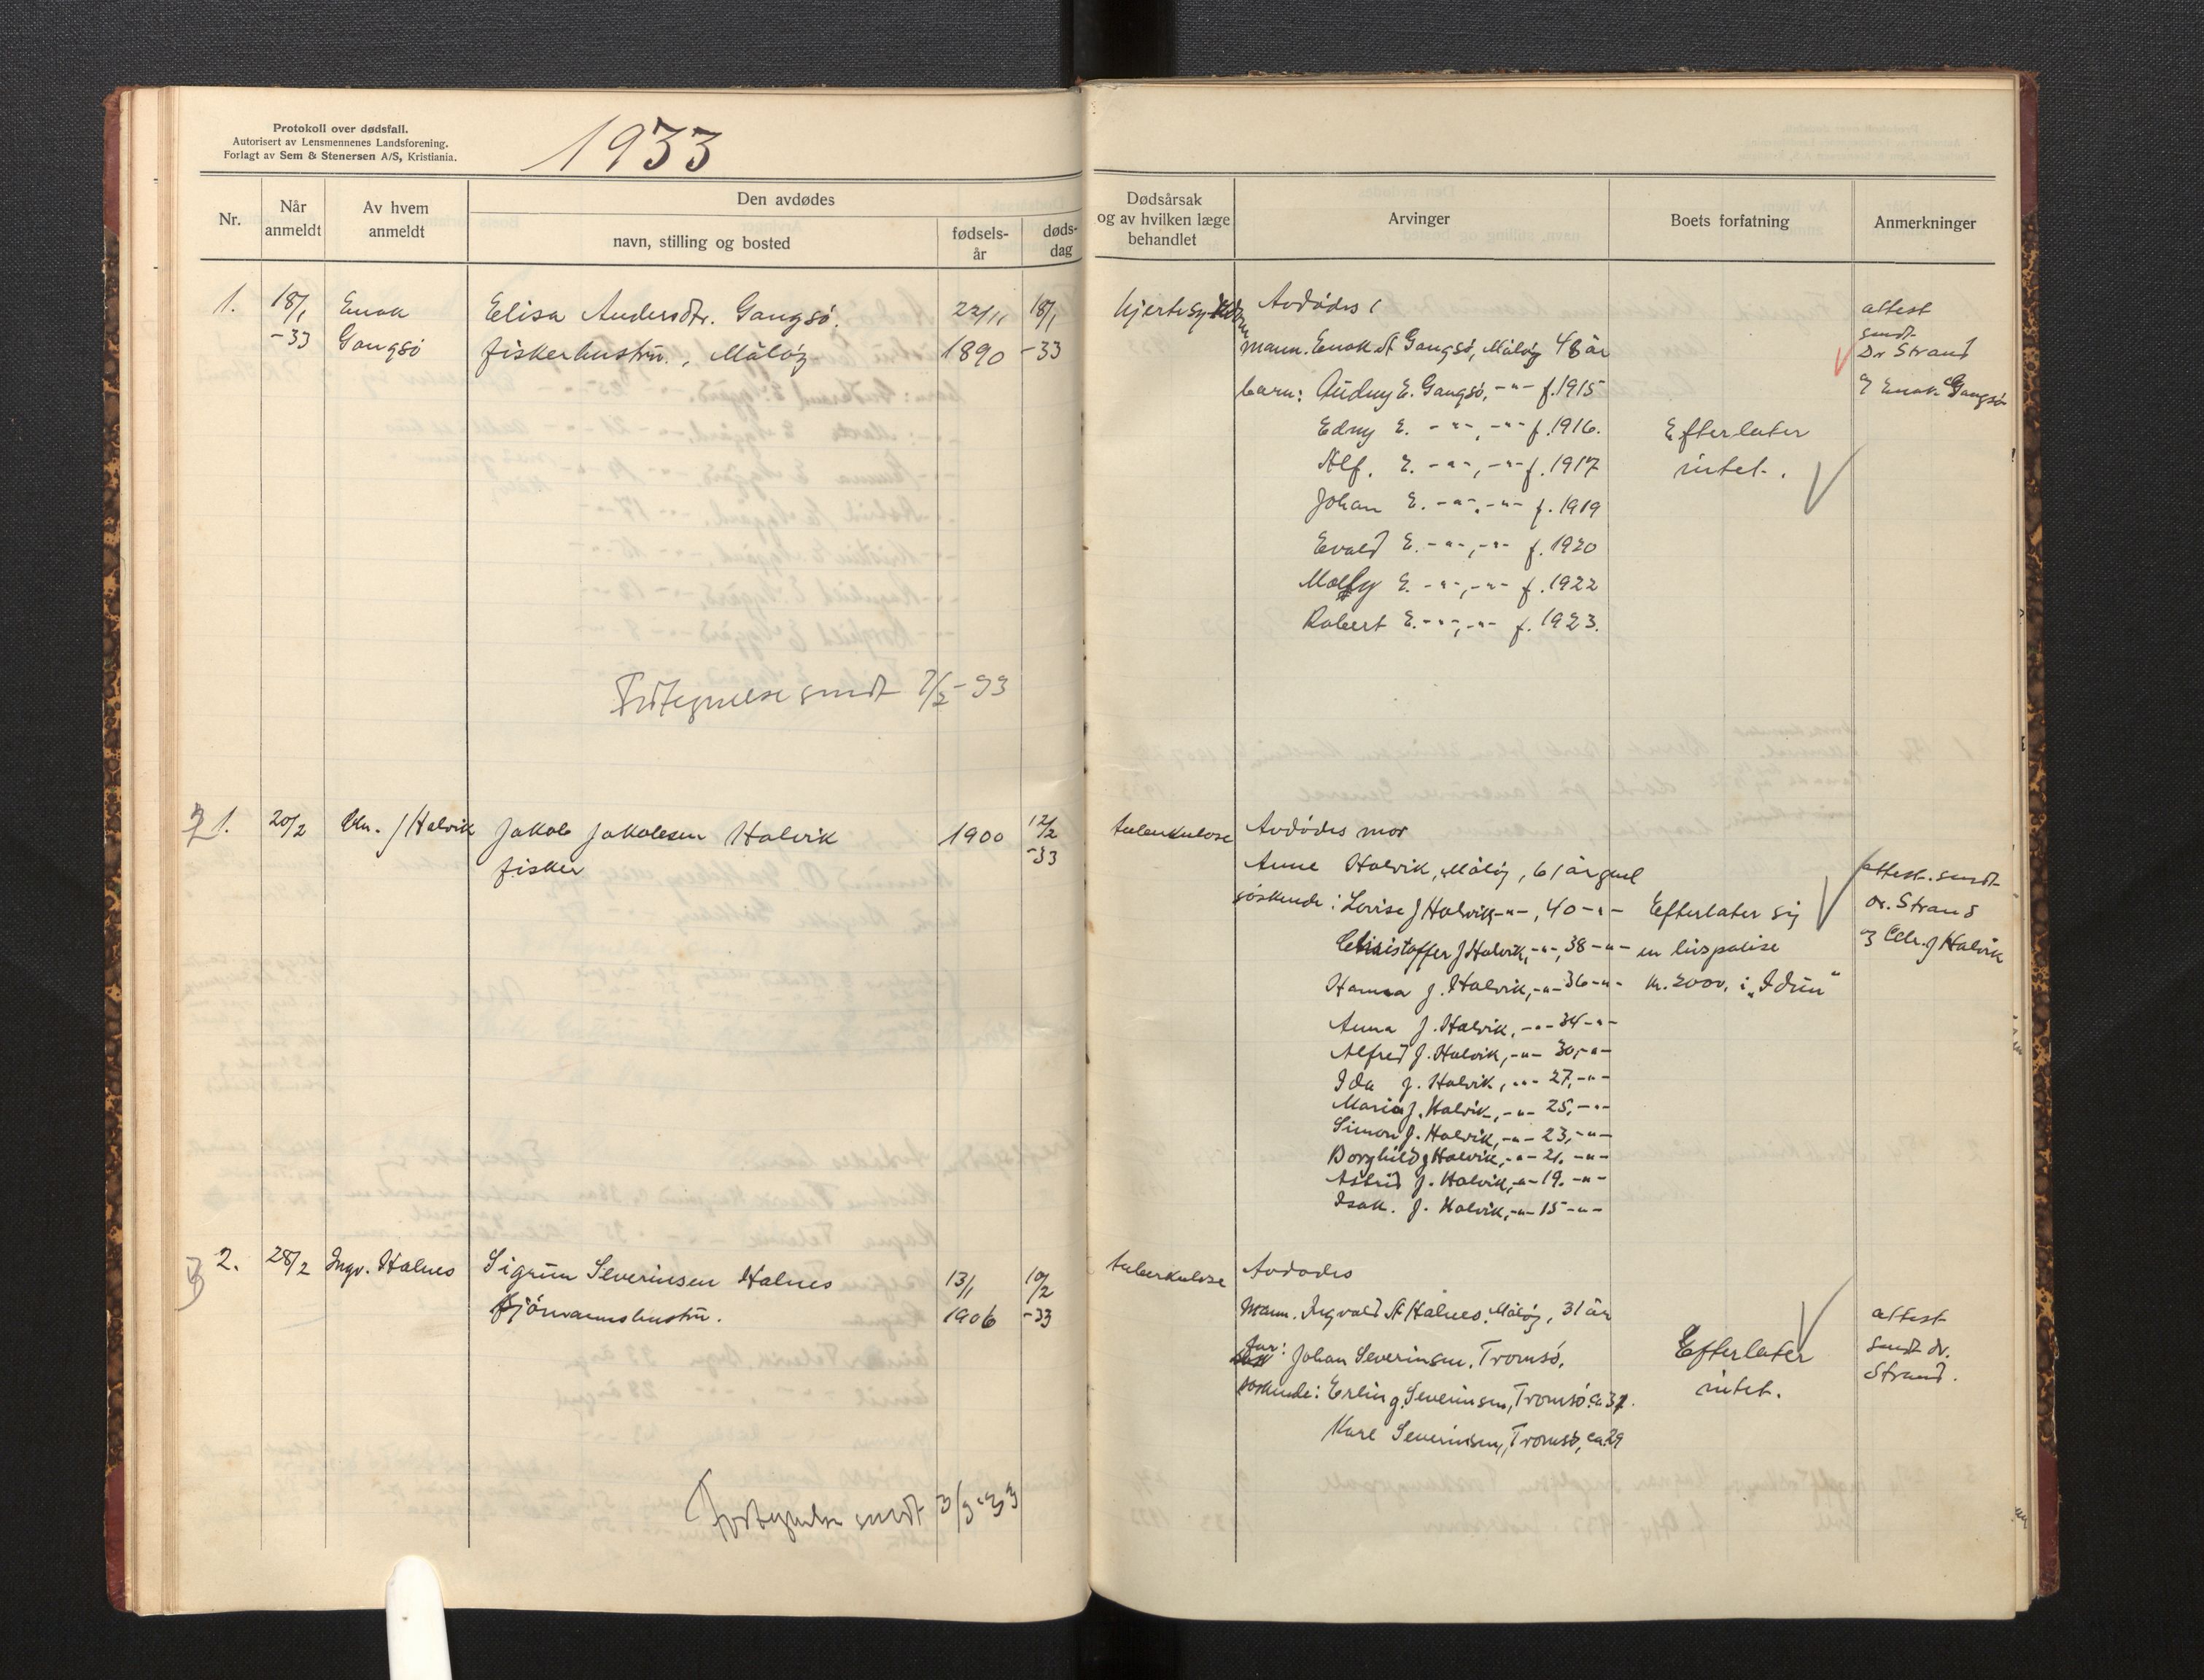 Protokoll over dødsfall.
Autorisert av Lensmennenes Landsforening.
Forlagt av Sem & Stenersen A/S, Kristiania.
1933
Nr.
Når anmeldt
Av hvem anmeldt
Den avdødes
navn, stilling og bosted
fødsels-år
døds-dag
Dødsårsak og av hvilken læge behandlet
Arvinger
Boets forfatning
Anmerkninger
1. 18/1 Enok Elisa Andersdtr. Gangsö. 22/11 18/1
-33 Gangsö fiskerhustru., Måløy 1890 -33
Avdødes
mann. Enok A Gangsö, Måløy 48 år
barn: Audny E. Gangsö, -"- f.1915
Edny E. -"-, -"- f.1916.
Alf. E. -"-, -"- f.1917
Johan E. -"-, -"- f.1919
Evald E. -"-, -"- f.1920
E. -"-, -"- f.1922
Robert E. -"-, -"- f.1923.
Efterlater
intet.
attest
sendt
Dr Strand
og Enok Gangsö
Fortegnelse sendt 7/2-33
2 1. 20/2 Chr. J Halvik Jakob Jakobsen Halvik 1900 12/2
fisker -33
tuberkulose
Avdødes mor
Anne Halvik, Måløy, 61 år gml
söskende: Lovise J Halvik -"-, 40 -"-
Christoffer J Halvik, -"-, 38 -"-
Hanna J. Halvik, -"- 36 -"-
Anna J. Halvik, -"- 34 -"-
Alfred J. Halvik, -"- 30, -"-
Ida J. Halvik, -"- 27, -"-
Maria J. Halvik, -"- 25, -"-
Simon J. Halvik, -"- 23, -"-
Borghild J Halvik, -"- 21. -"-
Astrid J. Halvik, -"- 19. -"-
Isak. J. Halvik, -"- 15 -"-
Efterlater sig
en livspolise
kr. 2000. i "Idun"
attest. sendt
dr. Strand
og Chr. J Halvik
3 2. 28/2 Ingv. Halnes Sigrun Severinsen Halnes 13/1 10/2
fjörmannshustru. 1906 -33
tuberkulose
Avdødes
Mann. Ingvald A Halnes, Måløy, 31 år
far: Johan Severinsen, Tromsö.
söskende: Erling Severinsen, Tromsö ca 37.
Kare Severinsen, Tromsö, ca 29
Efterlater
intet.
attest
sendt dr.
Strand.
Fortegnelse sendt 3/3-33